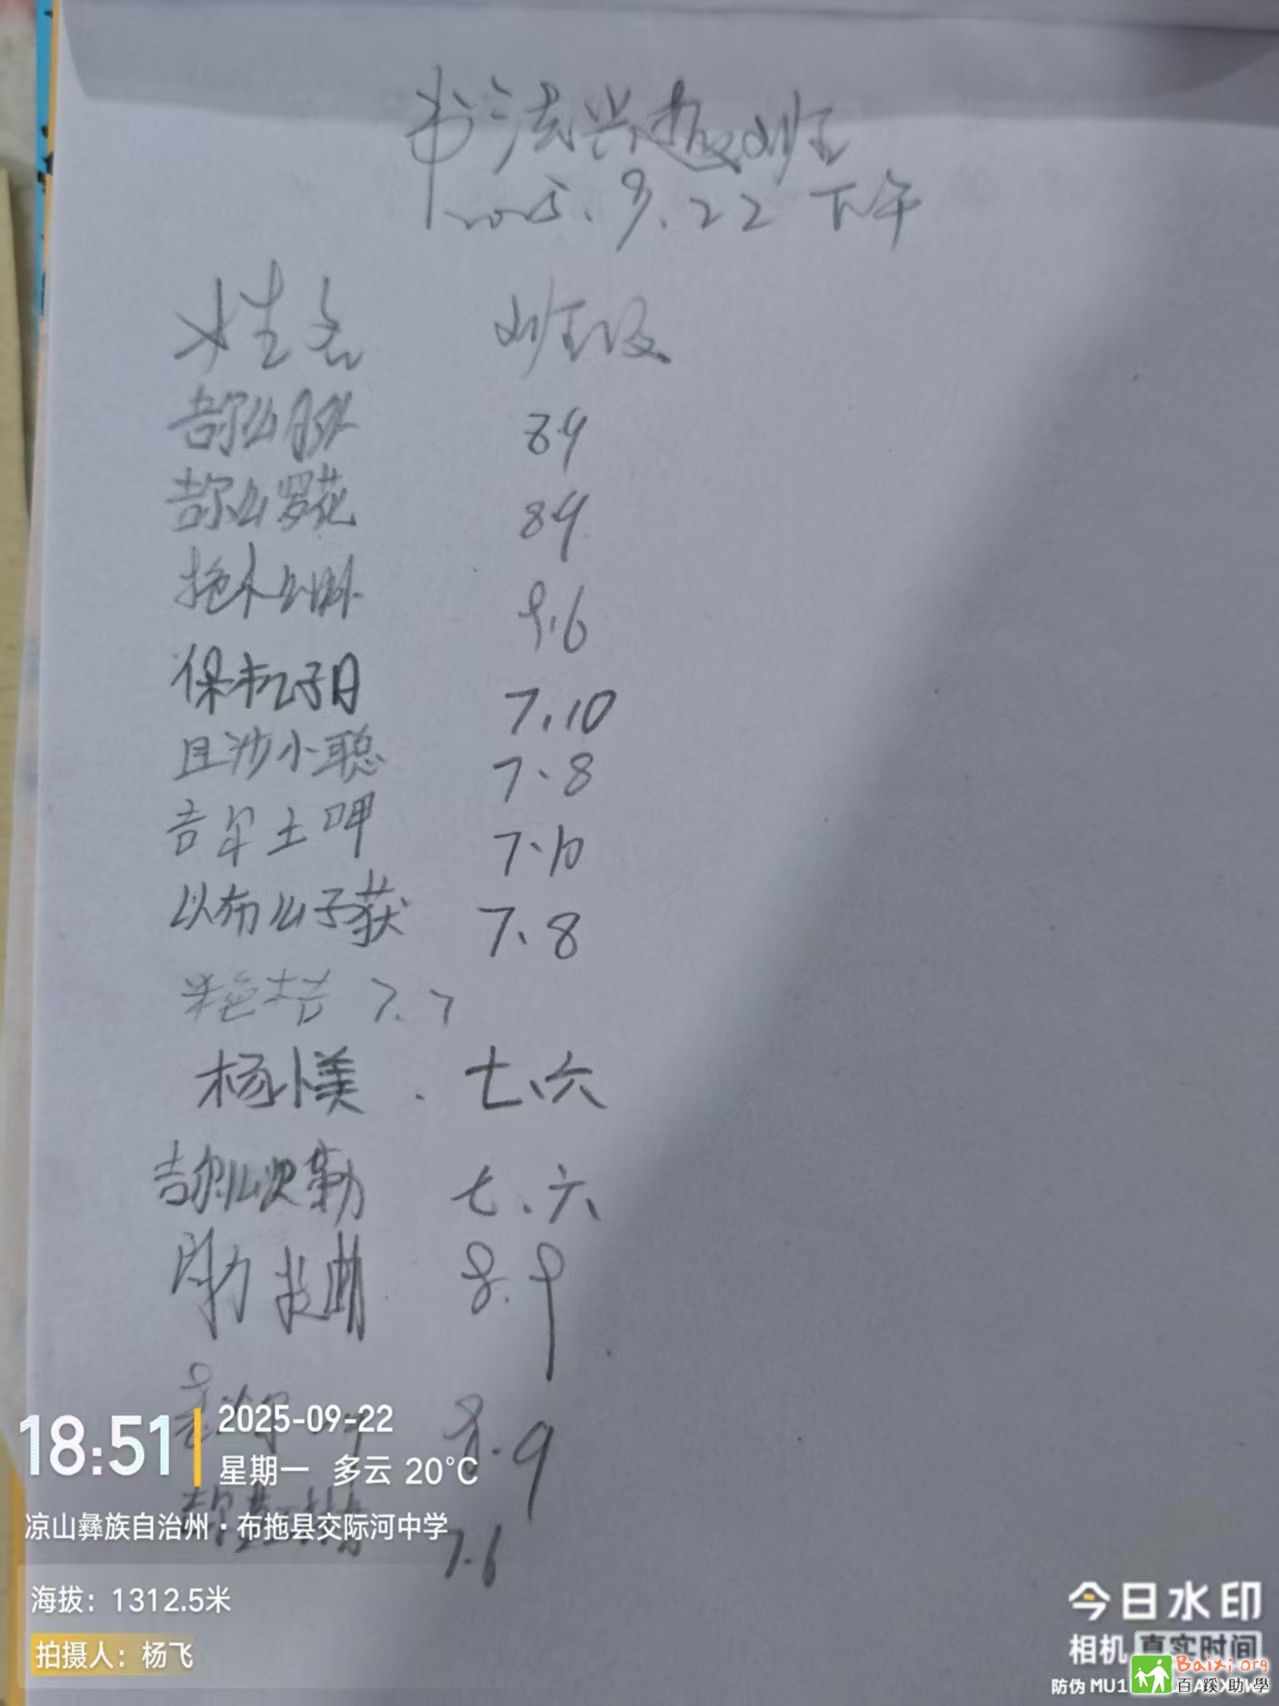 书法兴趣班
2025.9.22 下午
姓名 班级
吉尔么 89
吉尔么罗花 89
拖木 9.6
保 子日 7.10
且沙小聪 7.8
吉尔土呷 7.10
以布么子获 7.8
7.7
杨小美. 七、六
吉尔么次勒 七、六
曲 8.9
8.9
7.6
18:51
2025-09-22
星期一 多云 20°C
凉山彝族自治州·布拖县交际河中学
海拔：1312.5米
拍摄人：杨飞
今日水印
相机 真实时间
防伪 MU1
Baixi.org
百蹊助學